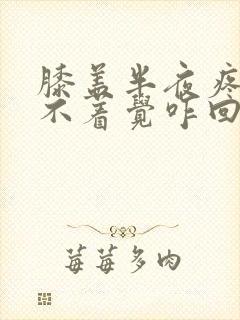 膝盖半夜疼
不着覺咋回
莓莓多肉